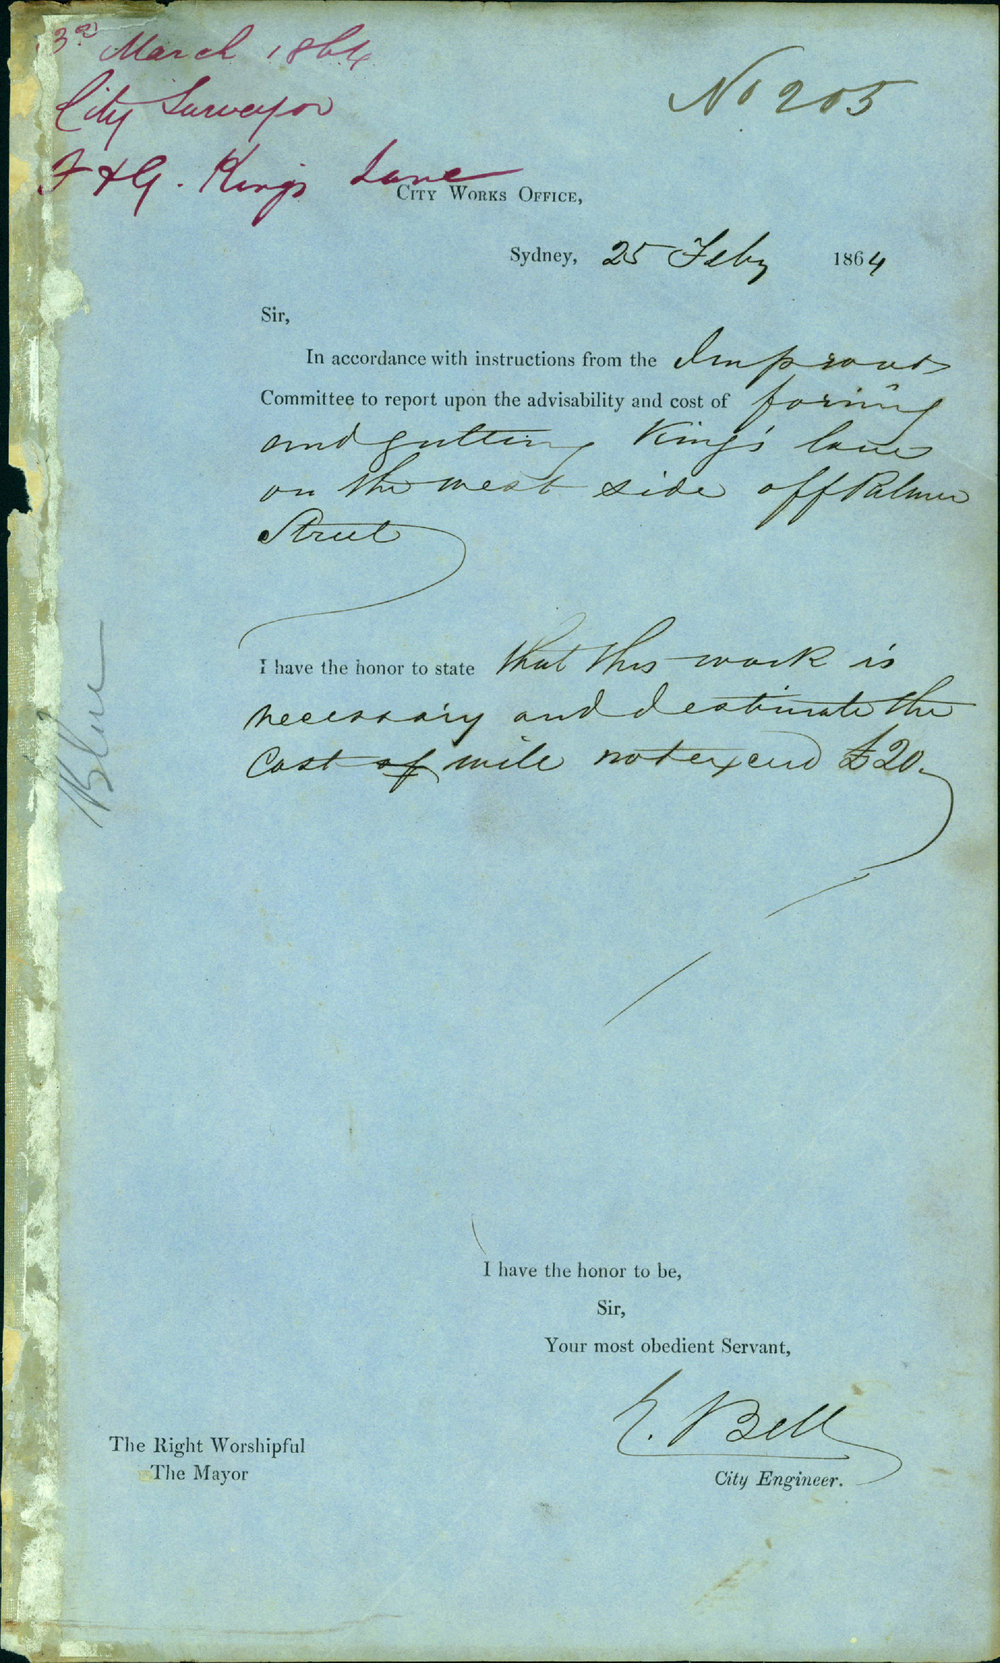 3rd March 1864
City Surveyor
F & G. Kings Lane
No 205
City Works Office,
Sydney, 25 Feby 1864
Sir,
In accordance with instructions from the Improvts
Committee to report upon the advisability and cost of forming
and guttering King's lane
on the west side off Palmer
Street
I have the honor to state that this work is
necessary and I estimate the
Cost of will not exceed £20.
Blue
I have the honor to be,
Sir,
Your most obedient Servant,
E. Bell
City Engineer.
The Right Worshipful
The Mayor